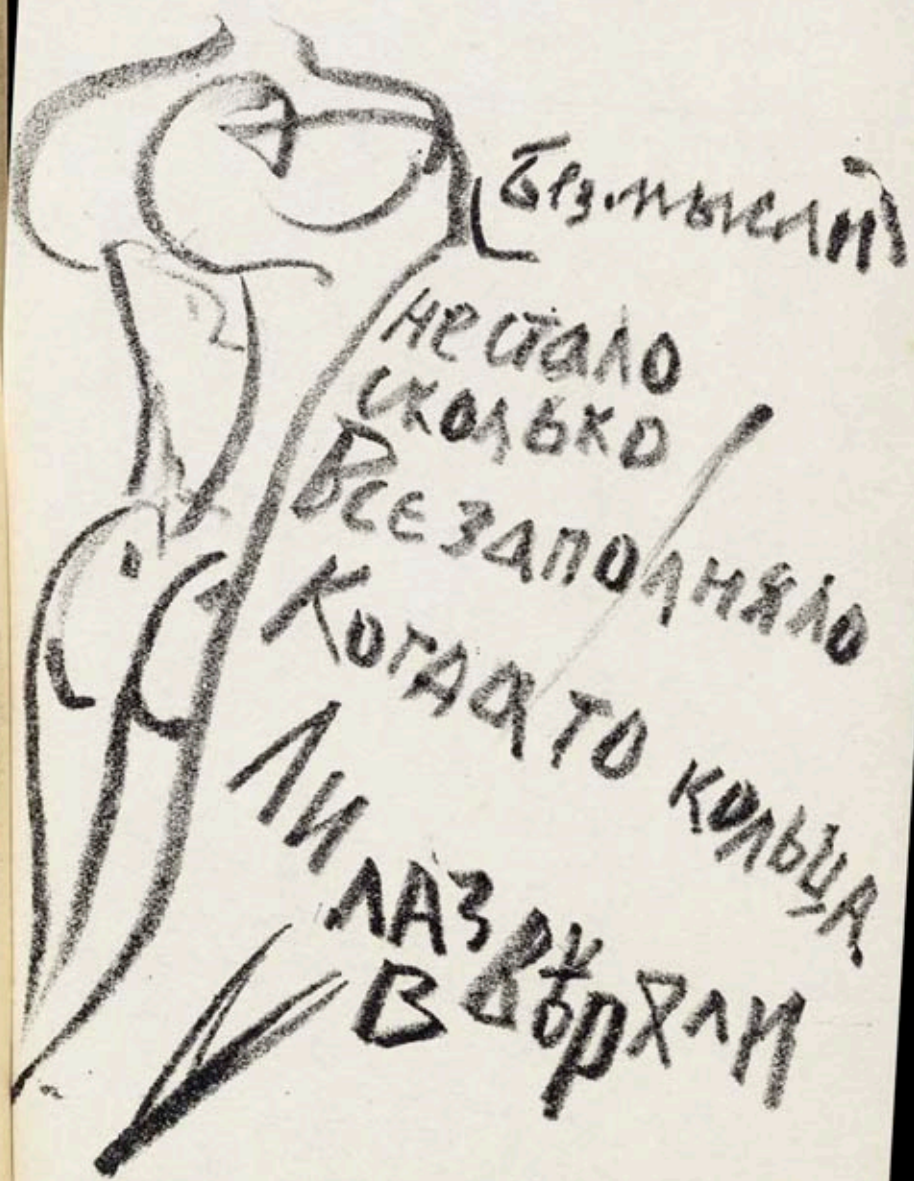 Без мысли
не стало
сколько
Все заполняло
Когда то кольца
Ли
лаз
В